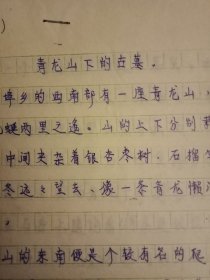 青龙山下的古墓.
埠乡的西南部有一座青龙山.
蜒两里之遥。山的上下分别
中间夹杂着银杏枣树.石榴
冬远远望去、像一条青龙懒
。
山的东南便是个较有名的爬